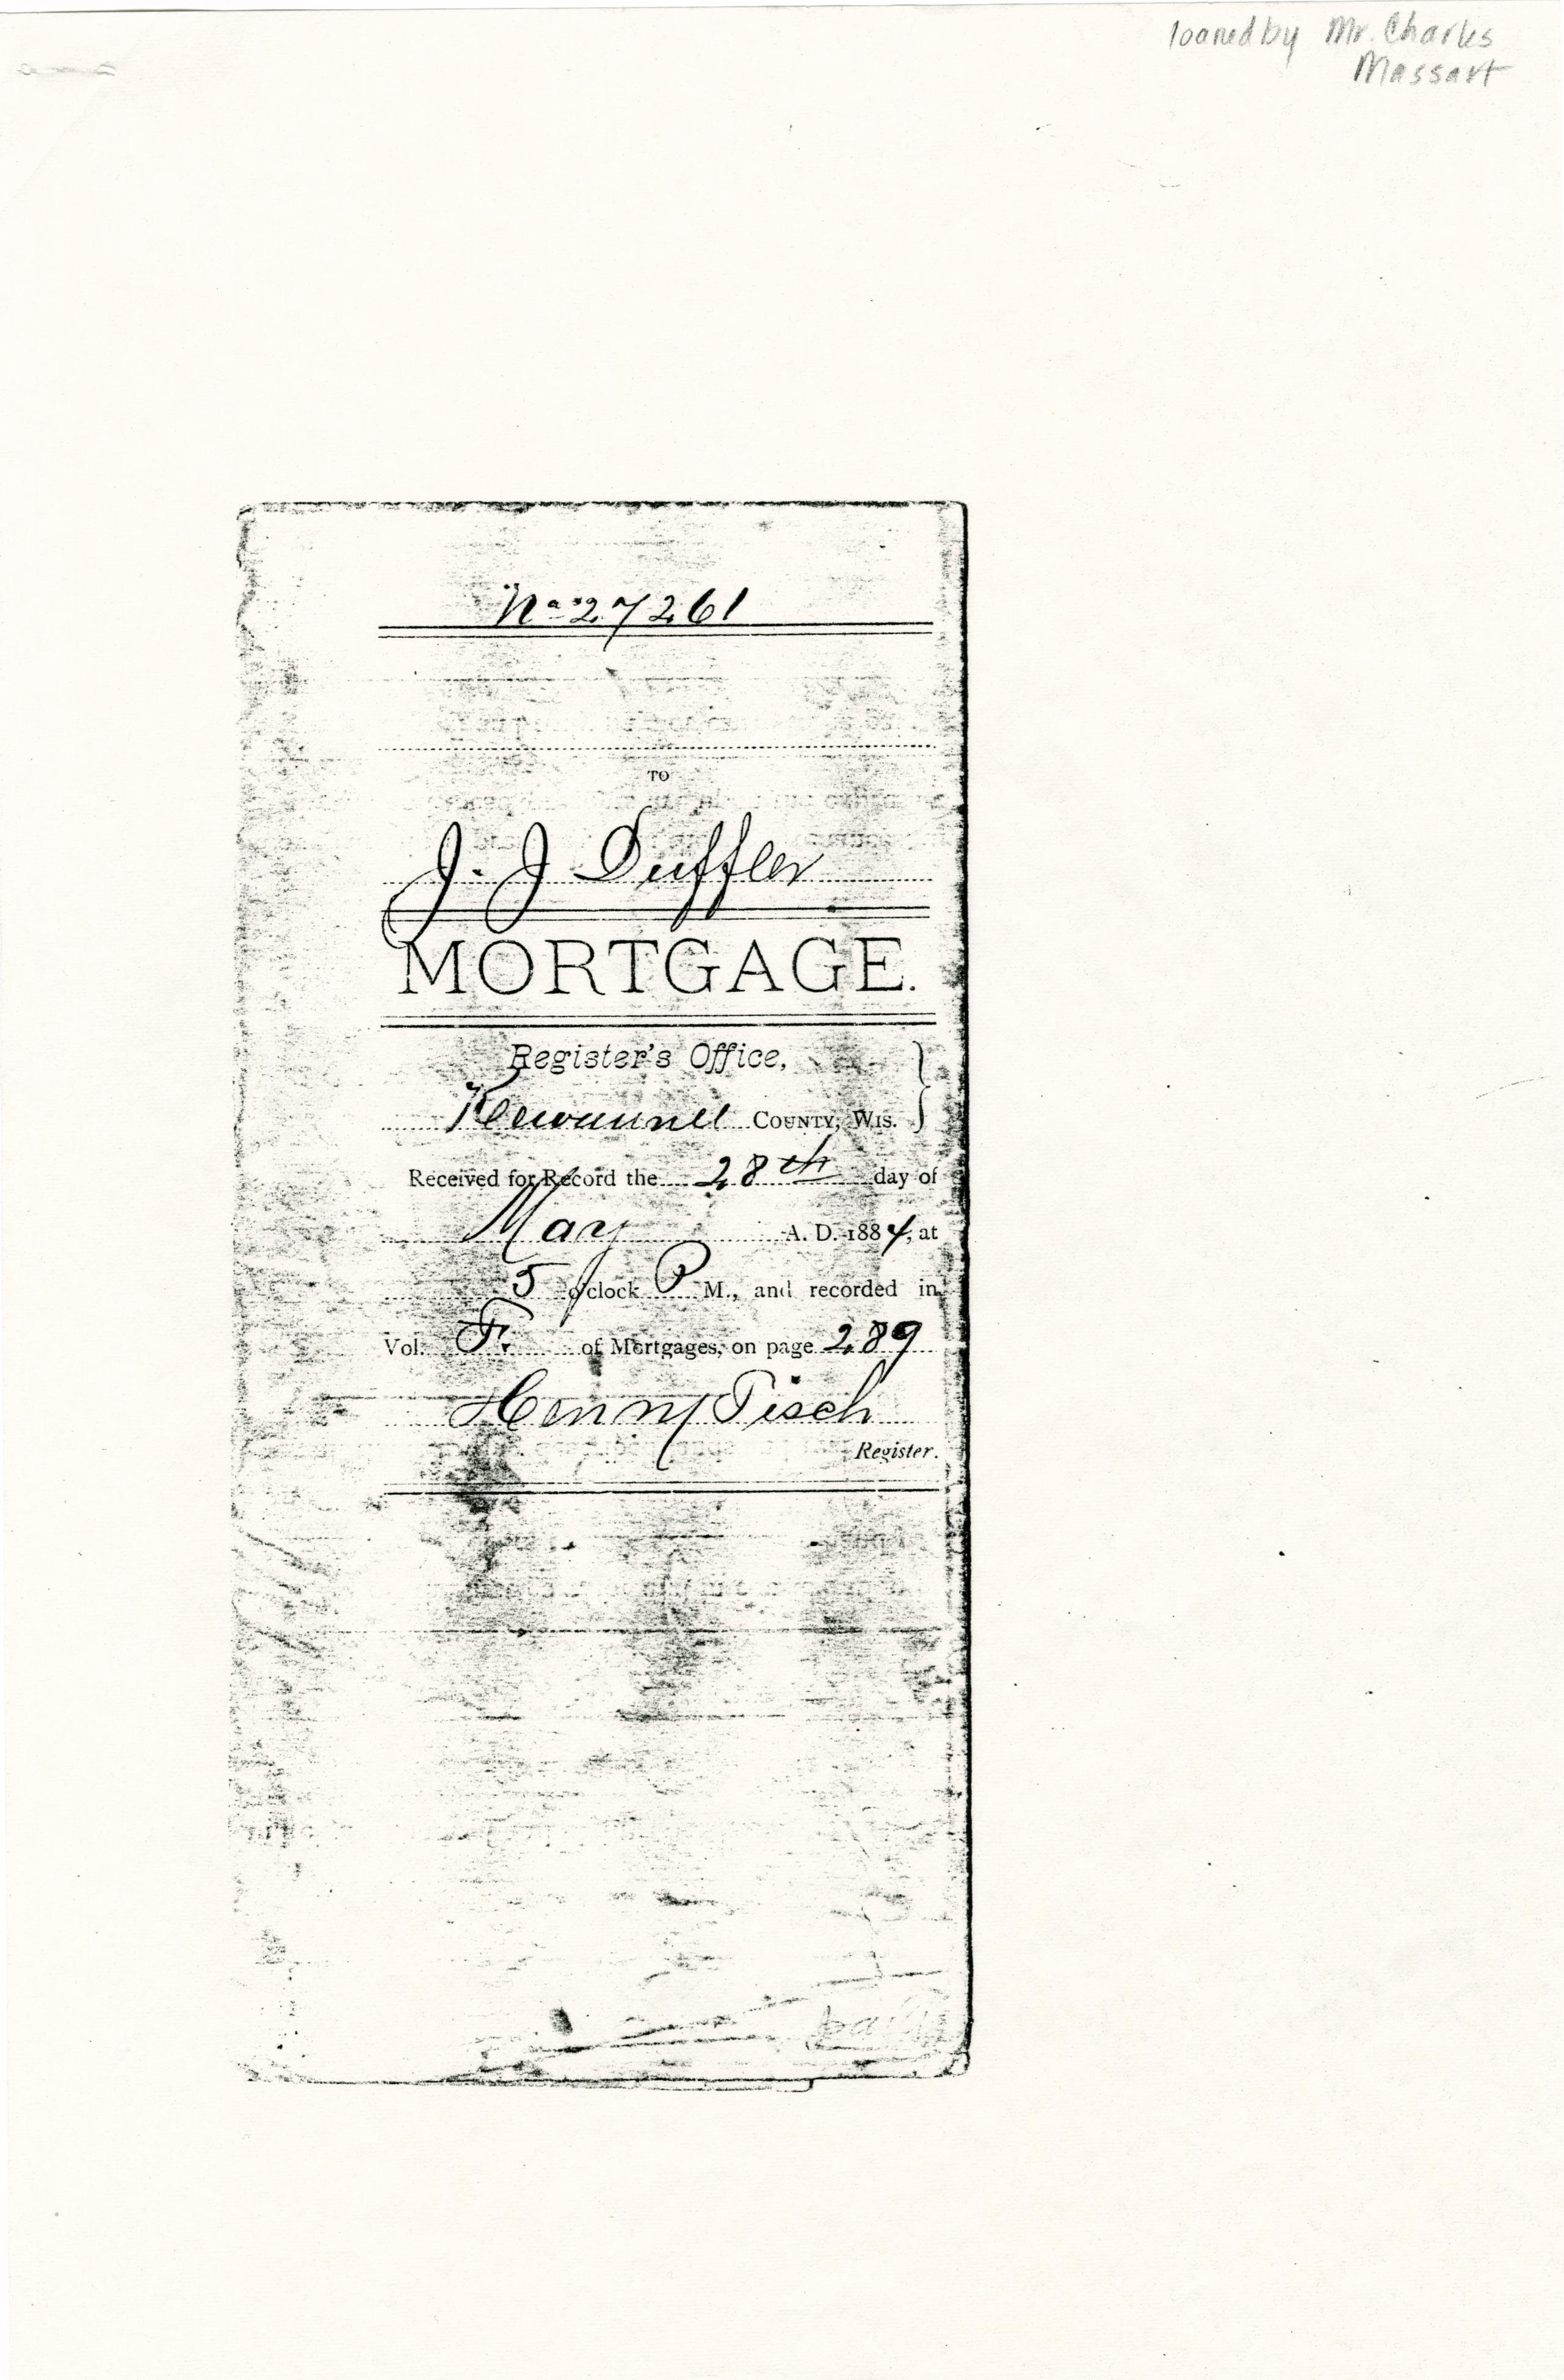 loaned by Mr. Charles
Massart
No 27261
TO
J. J Duffler
MORTGAGE.
Register's Office,
Kewaunee COUNTY, WIS.
Received for Record the 28th day of
May A. D. 1884, at
5 o'clock P M., and recorded in
Vol. F. of Mortgages, on page 289
Henry Tisch
Register.